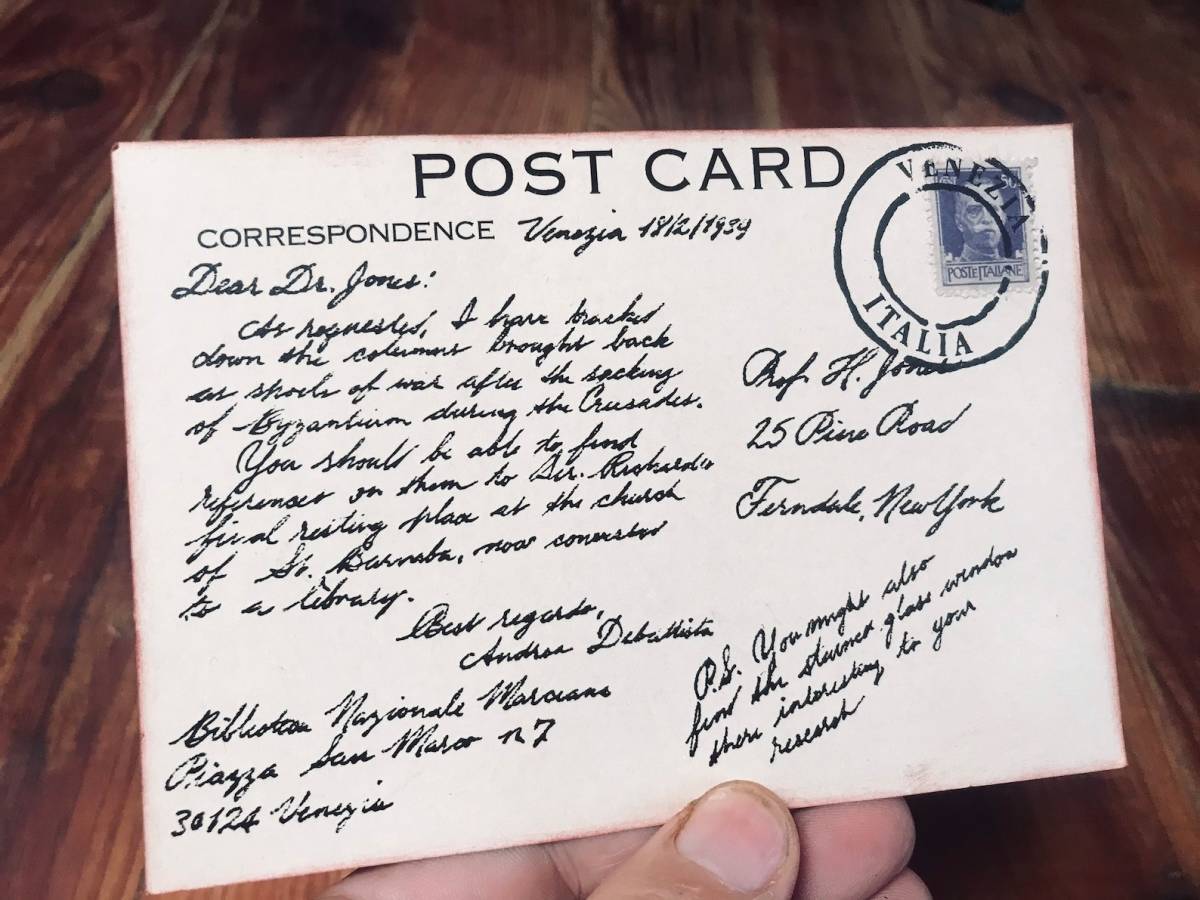 POST CARD
CORRESPONDENCE Venezia 18/2/1939
Dear Dr. Jones:
As requested, I have tracked
down the columns brought back
as spoils of war after the sacking
of Byzantium during the Crusades.
You should be able to find
references on them to Sir. Richard's
final resting place at the church
of St. Barnaba, now converted
to a library.
Best regards,
Andrea Debattista
Biblioteca Nazionale Marciana
Piazza San Marco n 7
30124 Venezia
VENEZIA
ITALIA
50
POSTE ITALIANE
Prof. H. Jones
25 Pine Road
Ferndale, New York
P.S. You might also
find the stained glass window
there interesting to your
research